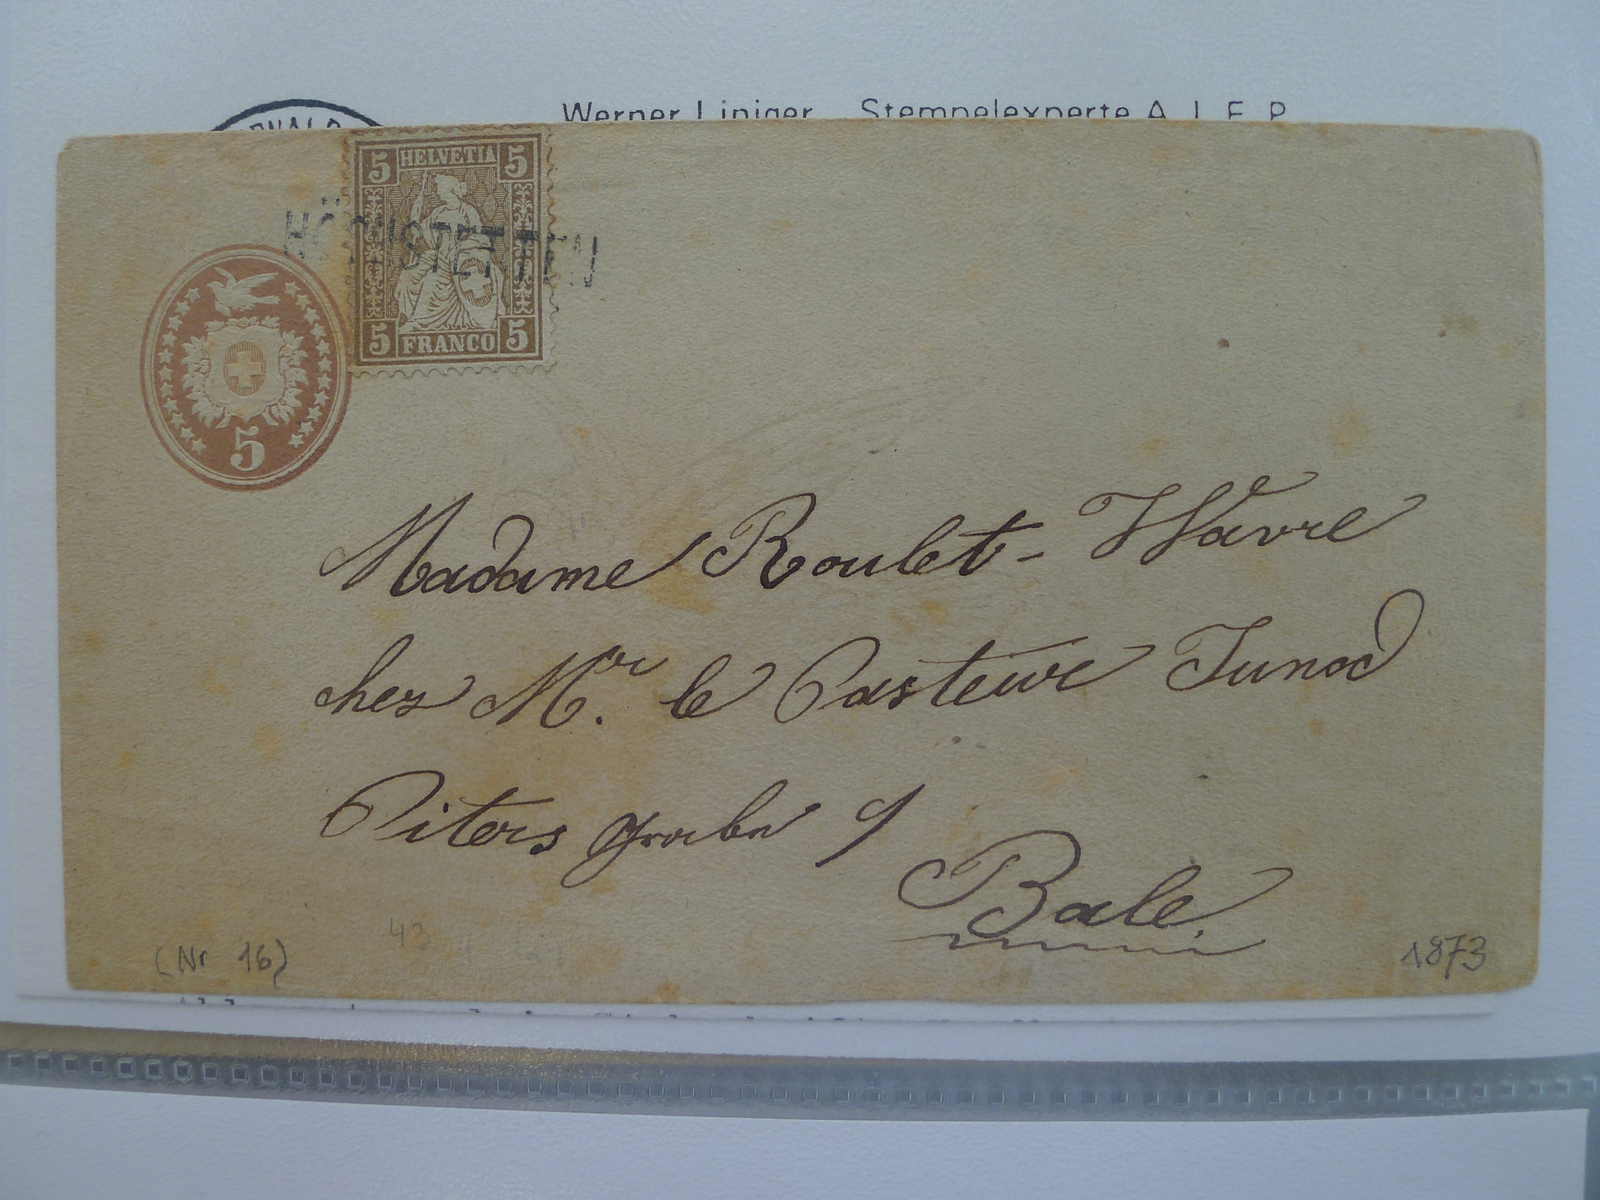 Werner Liniger Stempelexperte A. I. E. P.
5 HELVETIA 5
HÖCHSTETTEN
5 FRANCO 5
5
Madame Roulet-Wavre
chez Mr. le Pasteur Junod
Piters graben 9
Bale.
(Nr 16)
43
1873